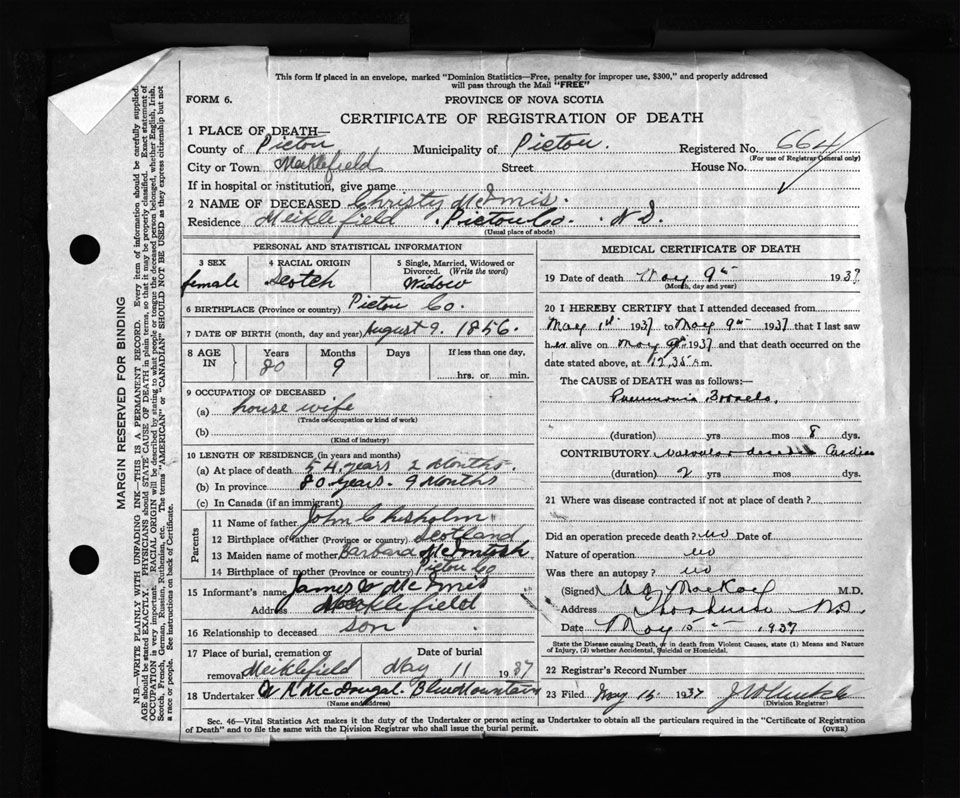 This form if placed in an envelope, marked "Dominion Statistics—Free, penalty for improper use, $300," and properly addressed
will pass through the Mail "FREE"
FORM 6.
PROVINCE OF NOVA SCOTIA
CERTIFICATE OF REGISTRATION OF DEATH
1 PLACE OF DEATH—
County of Pictou Municipality of Pictou. Registered No. 664
(For use of Registrar General only)
City or Town Meiklefield Street House No.
If in hospital or institution, give name
2 NAME OF DECEASED Christy McInnis.
Residence Meiklefield. Pictou Co. N.S.
(Usual place of abode)
PERSONAL AND STATISTICAL INFORMATION
3 SEX 4 RACIAL ORIGIN 5 Single, Married, Widowed or
Divorced. (Write the word)
female Scotch Widow
6 BIRTHPLACE (Province or country) Pictou Co.
7 DATE OF BIRTH (month, day and year) August 9. 1856.
8 AGE IN Years Months Days If less than one day,
80 9 hrs. or min.
9 OCCUPATION OF DECEASED
(a) house wife
(Trade occupation or kind of work)
(b)
(Kind of industry)
10 LENGTH OF RESIDENCE (in years and months)
(a) At place of death 54 years 2 Months.
(b) In province 80 years. 9 Months
(c) In Canada (if an immigrant)
Parents
11 Name of father John Chisholm
12 Birthplace of father (Province or country) Scotland
13 Maiden name of mother Barbara McIntosh
14 Birthplace of mother (Province or country) Pictou Co
15 Informant's name James McInnis
Address Meiklefield
16 Relationship to deceased son
17 Place of burial, cremation or Date of burial
removal Meiklefield May 11 1937
18 Undertaker McDougal. Blue Mountain
(Name and address)
MEDICAL CERTIFICATE OF DEATH
19 Date of death May 9th 1937
(Month, day and year)
20 I HEREBY CERTIFY that I attended deceased from
May 1st 1937 to May 9th 1937 that I last saw
her alive on May 9th 1937 and that death occurred on the
date stated above, at 12.35 m.
The CAUSE OF DEATH was as follows:—
Pneumonia
(duration) yrs mos 8 dys.
CONTRIBUTORY Valvular disease Cardiac
(duration) 2 yrs mos dys.
21 Where was disease contracted if not at place of death?
Did an operation precede death? no Date of
Nature of operation no
Was there an autopsy? no
(Signed) MacKay M.D.
Address Thorburn N.S.
Date May 15th 1937
State the Disease causing Death, or in death from Violent Causes, state (1) Means and Nature
of Injury, (2) whether Accidental, Suicidal or Homicidal.
22 Registrar's Record Number
23 Filed May 15 1937
(Division Registrar)
Sec. 46—Vital Statistics Act makes it the duty of the Undertaker or person acting as Undertaker to obtain all the particulars required in the "Certificate of Registration
of Death" and to file the same with the Division Registrar who shall issue the burial permit. (OVER)
MARGIN RESERVED FOR BINDING
N.B.—WRITE PLAINLY WITH UNFADING INK—THIS IS A PERMANENT RECORD. Every item of information should be carefully supplied.
AGE should be stated EXACTLY. PHYSICIANS should STATE CAUSE OF DEATH in plain terms, so that it may be properly classified. Exact statement of
OCCUPATION is very important. RACIAL ORIGIN will be described by stating to what people or tongue the deceased person belonged, whether English, Irish,
Scotch, French, German, Russian, Ruthenian, etc. The terms "AMERICAN" or "CANADIAN" SHOULD NOT BE USED as they express citizenship but not
a race or people. See instructions on back of Certificate.